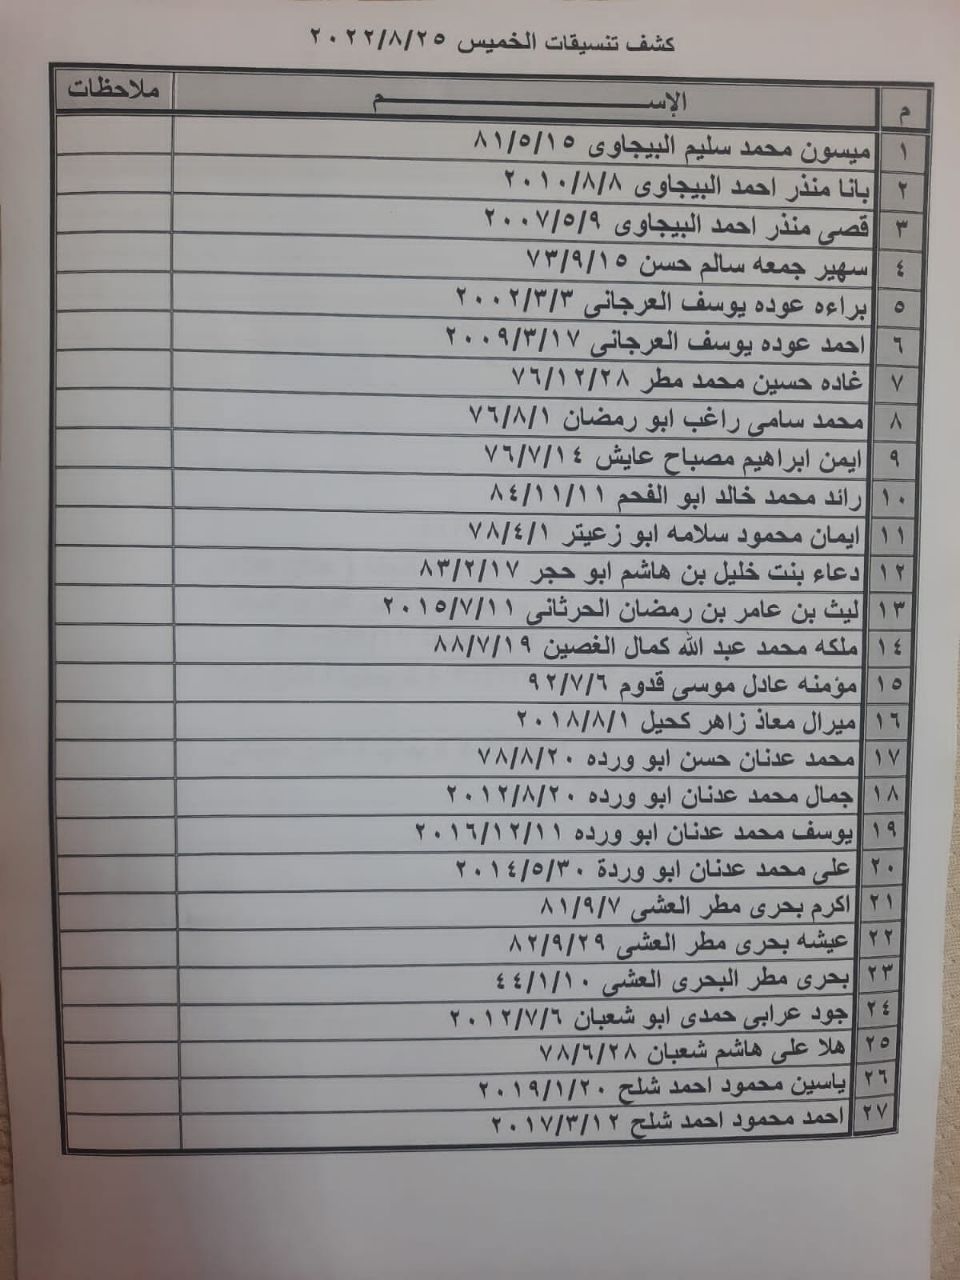 كشف تنسيقات الخميس ٢٠٢٢/٨/٢٥
م الإســـــــــــم ملاحظات
١ ميسون محمد سليم البيجاوى ٨١/٥/١٥
٢ بانا منذر احمد البيجاوى ٢٠١٠/٨/٨
٣ قصى منذر احمد البيجاوى ٢٠٠٧/٥/٩
٤ سهير جمعه سالم حسن ٧٣/٩/١٥
٥ براءه عوده يوسف العرجانى ٢٠٠٢/٣/٣
٦ احمد عوده يوسف العرجانى ٢٠٠٩/٣/١٧
٧ غاده حسين محمد مطر ٧٦/١٢/٢٨
٨ محمد سامى راغب ابو رمضان ٧٦/٨/١
٩ ايمن ابراهيم مصباح عايش ٧٦/٧/١٤
١٠ رائد محمد خالد ابو الفحم ٨٤/١١/١١
١١ ايمان محمود سلامه ابو زعيتر ٧٨/٤/١
١٢ دعاء بنت خليل بن هاشم ابو حجر ٨٣/٢/١٧
١٣ ليث بن عامر بن رمضان الحرثانى ٢٠١٥/٧/١١
١٤ ملكه محمد عبد الله كمال الغصين ٨٨/٧/١٩
١٥ مؤمنه عادل موسى قدوم ٩٢/٧/٦
١٦ ميرال معاذ زاهر كحيل ٢٠١٨/٨/١
١٧ محمد عدنان حسن ابو ورده ٧٨/٨/٢٠
١٨ جمال محمد عدنان ابو ورده ٢٠١٢/٨/٢٠
١٩ يوسف محمد عدنان ابو ورده ٢٠١٦/١٢/١١
٢٠ على محمد عدنان ابو وردة ٢٠١٤/٥/٣٠
٢١ اكرم بحرى مطر العشى ٨١/٩/٧
٢٢ عيشه بحرى مطر العشى ٨٢/٩/٢٩
٢٣ بحرى مطر البحرى العشى ٤٤/١/١٠
٢٤ جود عرابى حمدى ابو شعبان ٢٠١٢/٧/٦
٢٥ هلا على هاشم شعبان ٧٨/٦/٢٨
٢٦ ياسين محمود احمد شلح ٢٠١٩/١/٢٠
٢٧ احمد محمود احمد شلح ٢٠١٧/٣/١٢